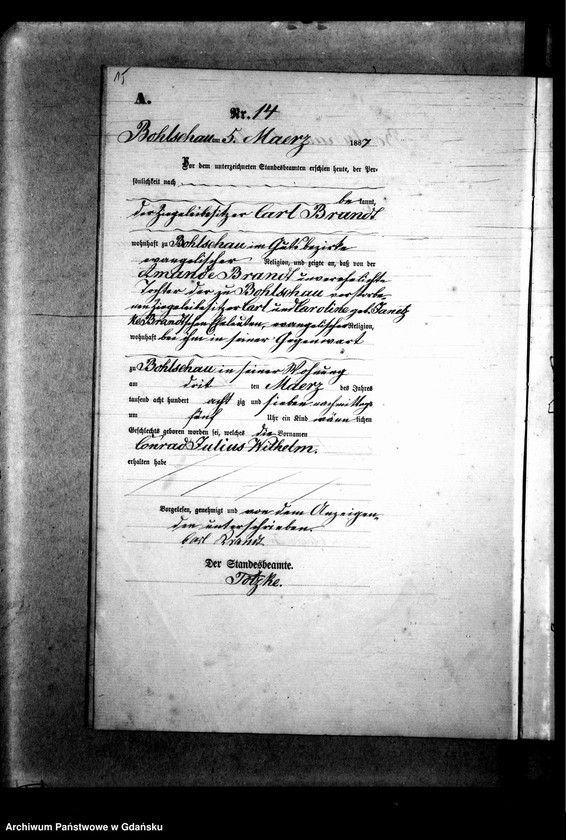 15
A.
Nr. 14
Bohlschau am 5. Maerz 1887
Vor dem unterzeichneten Standesbeamten erschien heute, der Per-
sönlichkeit nach
be kannt,
der Ziegeleibesitzer Carl Brandt
wohnhaft zu Bohlschau im Gutsbezirke
evangelischer Religion, und zeigte an, daß von der
Amande Brandt unverehelichte
Tochter der zu Bohlschau verstorbe-
nen Ziegeleibesitzer Carl und Caroline geb.
Brandtschen Eheleuten, evangelischer Religion,
wohnhaft bei ihm in seiner Gegenwart
zu Bohlschau in seiner Wohnung
am drit ten Maerz des Jahres
tausend acht hundert acht zig und sieben nachmittags
um fünf Uhr ein Kind männ lichen
Geschlechts geboren worden sei, welches die Vornamen
Conrad Julius Wilhelm.
erhalten habe
Vorgelesen, genehmigt und von dem Anzeigen-
den unterschrieben.
Carl Brandt
Der Standesbeamte.
Totzke.
Archiwum Państwowe w Gdańsku